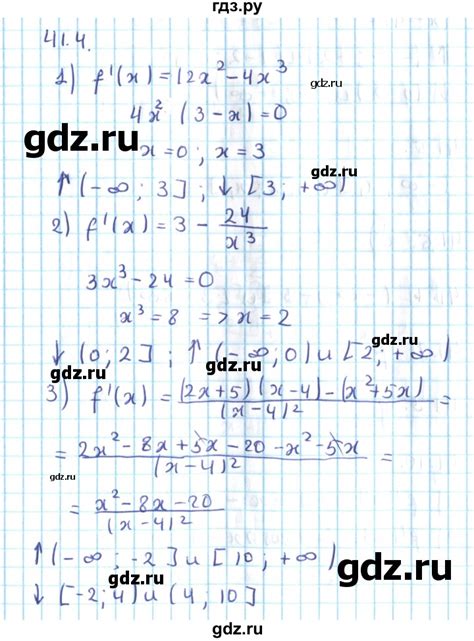 гдз.ру
41.4.
1) f'(x) = 12x² - 4x³
gdz.ru
4x² (3 - x) = 0
gdz.ru
x = 0 ; x = 3
gdz.ru
↑ (-∞ ; 3] ; ↓ [3 ; +∞)
2) f'(x) = 3 - 24/x³
gdz.ru
3x³ - 24 = 0
gdz.ru
x³ = 8 => x = 2
gdz.ru
↓ (0; 2] ; ↑ (-∞; 0) и [2; +∞)
gdz.ru
gdz.ru
3) f'(x) = ((2x+5)(x-4) - (x²+5x))/(x-4)² =
= (2x² - 8x + 5x - 20 - x² - 5x)/(x-4)² =
gdz.ru
gdz.ru
= (x² - 8x - 20)/(x-4)²
gdz.ru
↑ (-∞ ; -2] и [10 ; +∞)
gdz.ru
gdz.ru
↓ [-2; 4) и (4 ; 10]
gdz.ru